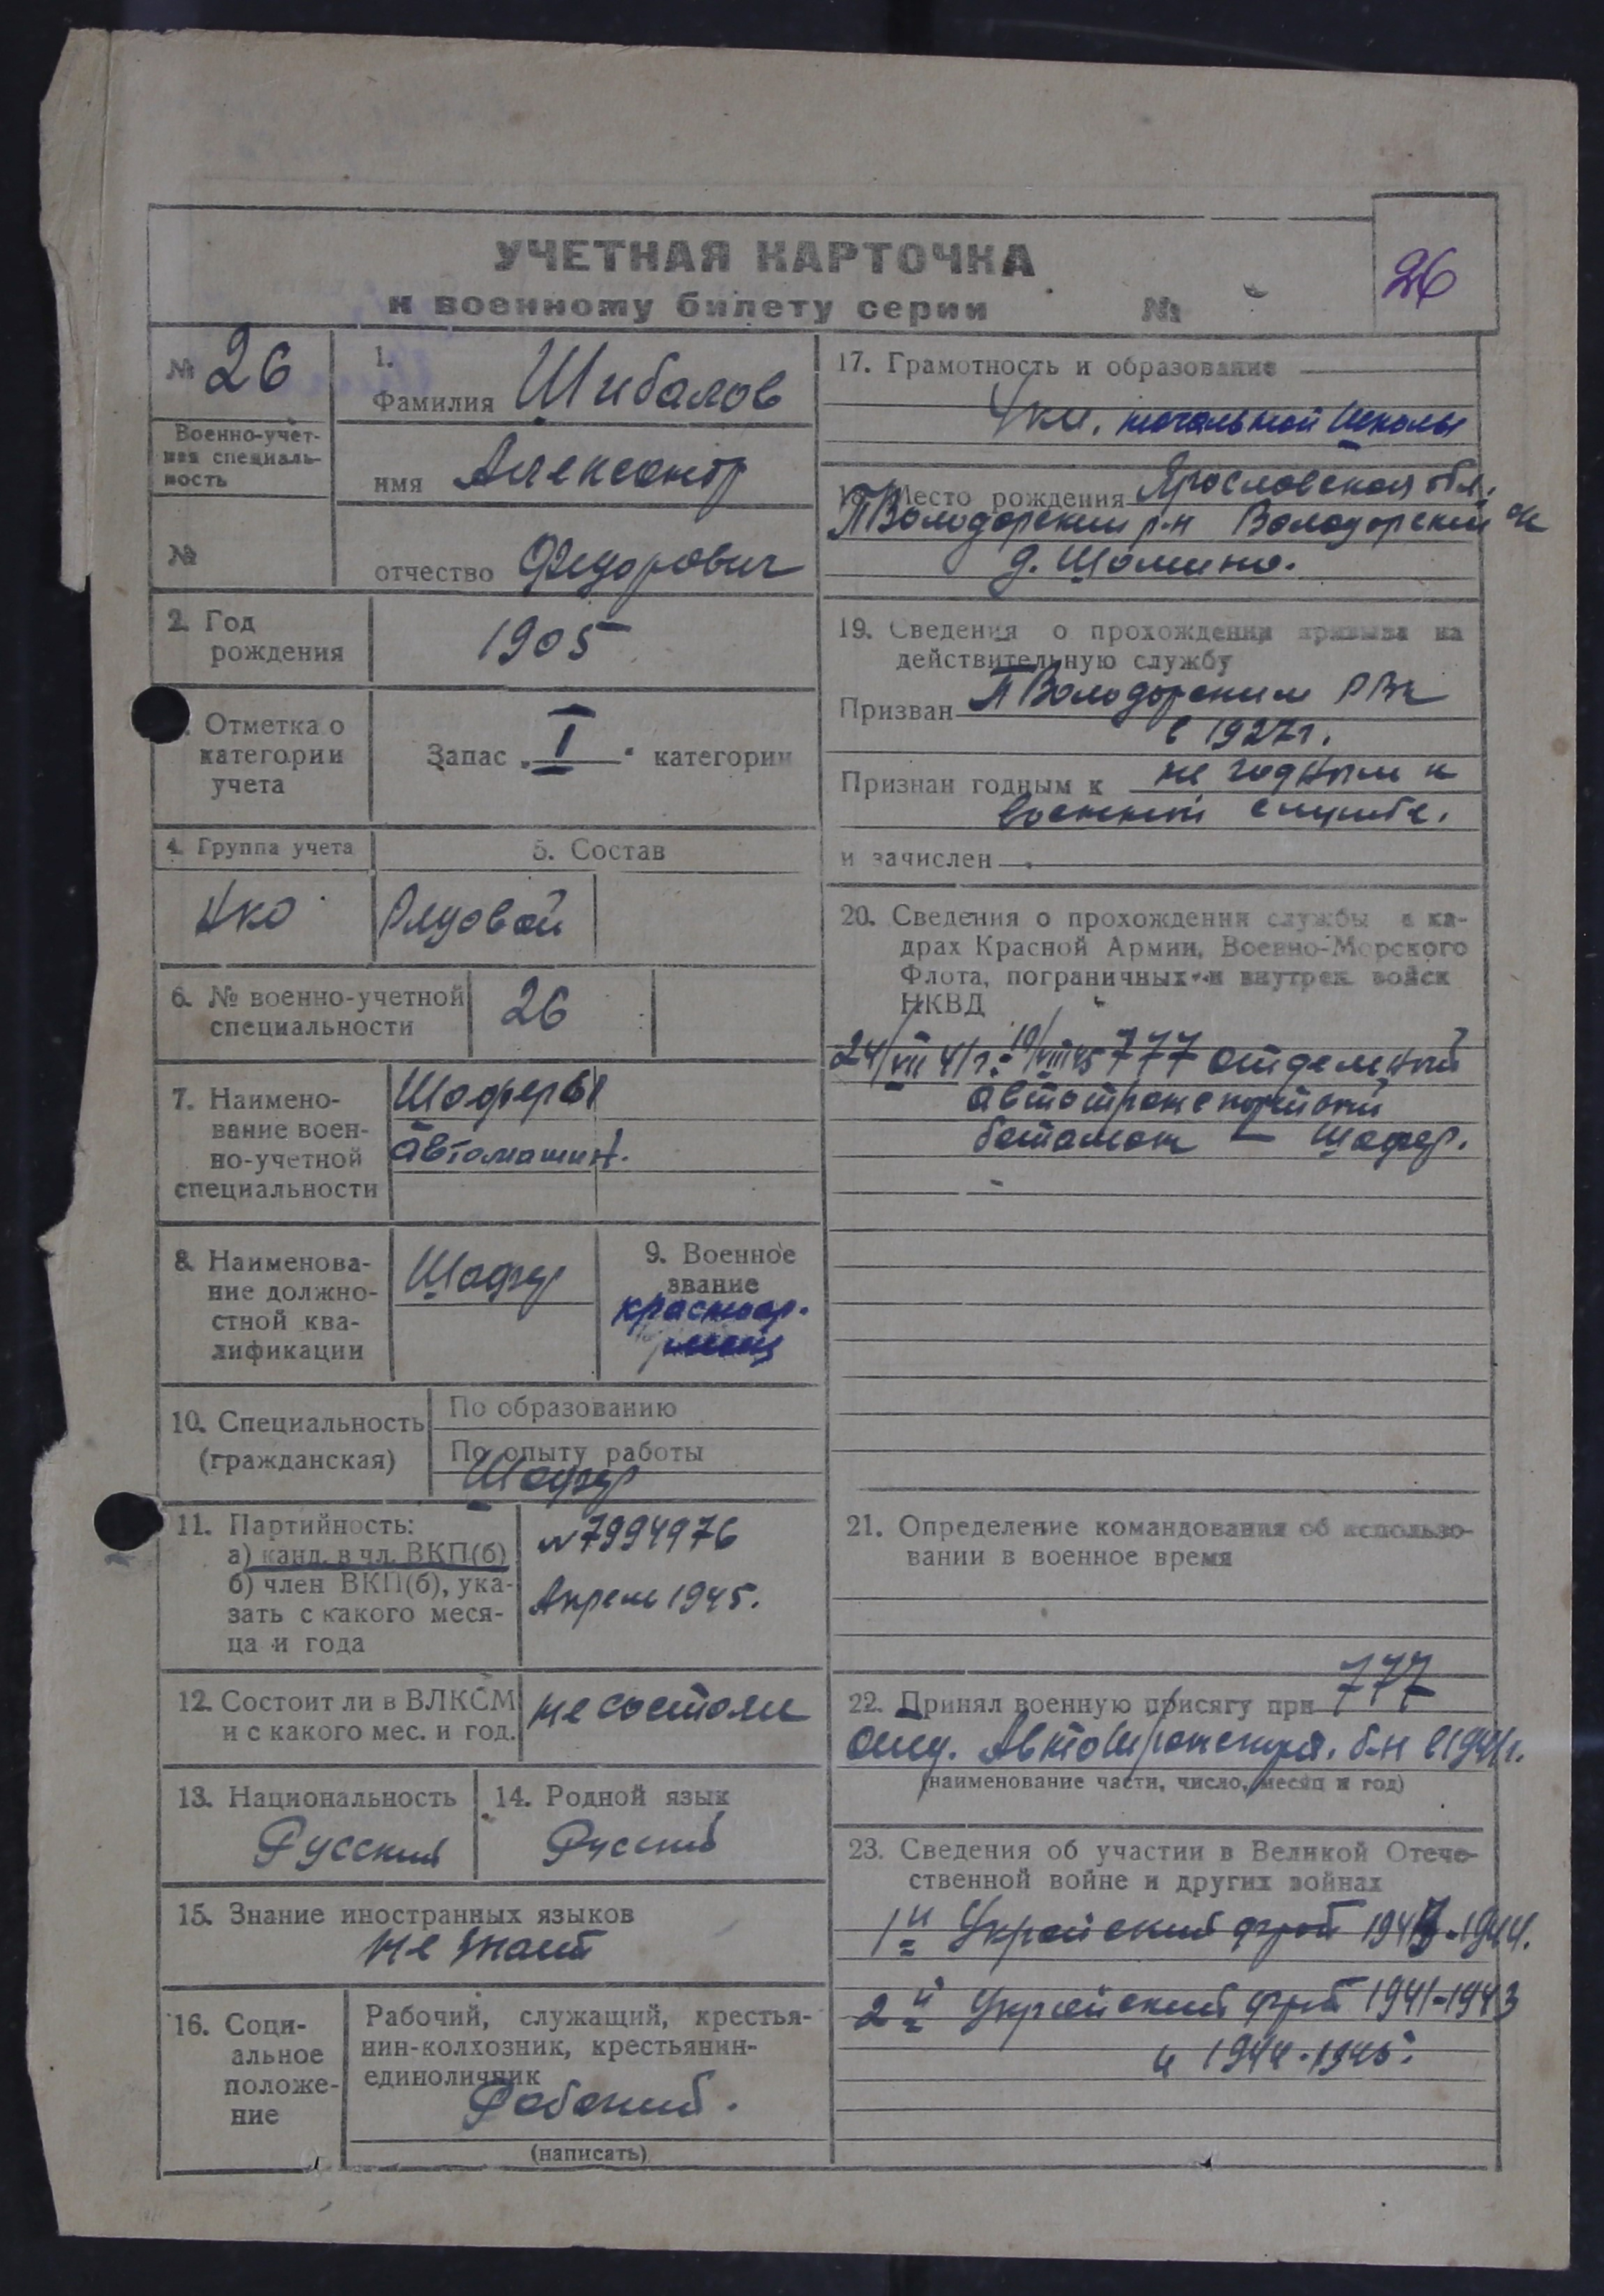 УЧЕТНАЯ КАРТОЧКА
к военному билету серии №
26
№ 26
Военно-учет-
ная специаль-
ность
№
1.
Фамилия Шибалов
имя Александр
отчество Федорович
2. Год
рождения
1905
Отметка о
категории
учета
Запас „I“ категории
4. Группа учета
5. Состав
Рядовой
6. № военно-учетной
специальности
26
7. Наимено-
вание воен-
но-учетной
специальности
Шофера
автомашин.
8. Наименова-
ние должно-
стной ква-
лификации
Шофер
9. Военное
звание
красноар-
меец
10. Специальность
(гражданская)
По образованию
По опыту работы
Шофер
11. Партийность:
а) канд. в чл. ВКП(б)
б) член ВКП(б), ука-
зать с какого меся-
ца и года
№7994976
Апрель 1945.
12. Состоит ли в ВЛКСМ
и с какого мес. и год.
не состоял
13. Национальность
Русский
14. Родной язык
Русский
15. Знание иностранных языков
не знает
16. Соци-
альное
положе-
ние
Рабочий, служащий, крестья-
нин-колхозник, крестьянин-
единоличник
Рабочий.
(написать)
17. Грамотность и образование
4 кл. начальной школы
18. Место рождения Ярославская обл.
П Володарский р-н Володарский
д. Шомино.
19. Сведения о прохождении призыва на
действительную службу
Призван П Володарским РВК
в 1927г.
Признан годным к не годным к
военной службе.
и зачислен
20. Сведения о прохождении службы в ка-
драх Красной Армии, Военно-Морского
Флота, пограничных и внутрен. войск
НКВД
24/VII 41г. - 19/VIII 45 777 отдельный
автотранспортный
батальон - шофер.
21. Определение командования об использо-
вании в военное время
22. Принял военную присягу при 777
отд. Автотранспорт. б-н в 1941г.
(наименование части, число, месяц и год)
23. Сведения об участии в Великой Отече-
ственной войне и других войнах
1й Украинский фронт 1943-1944.
2й Украинский фронт 1941-1943
и 1944-1945.